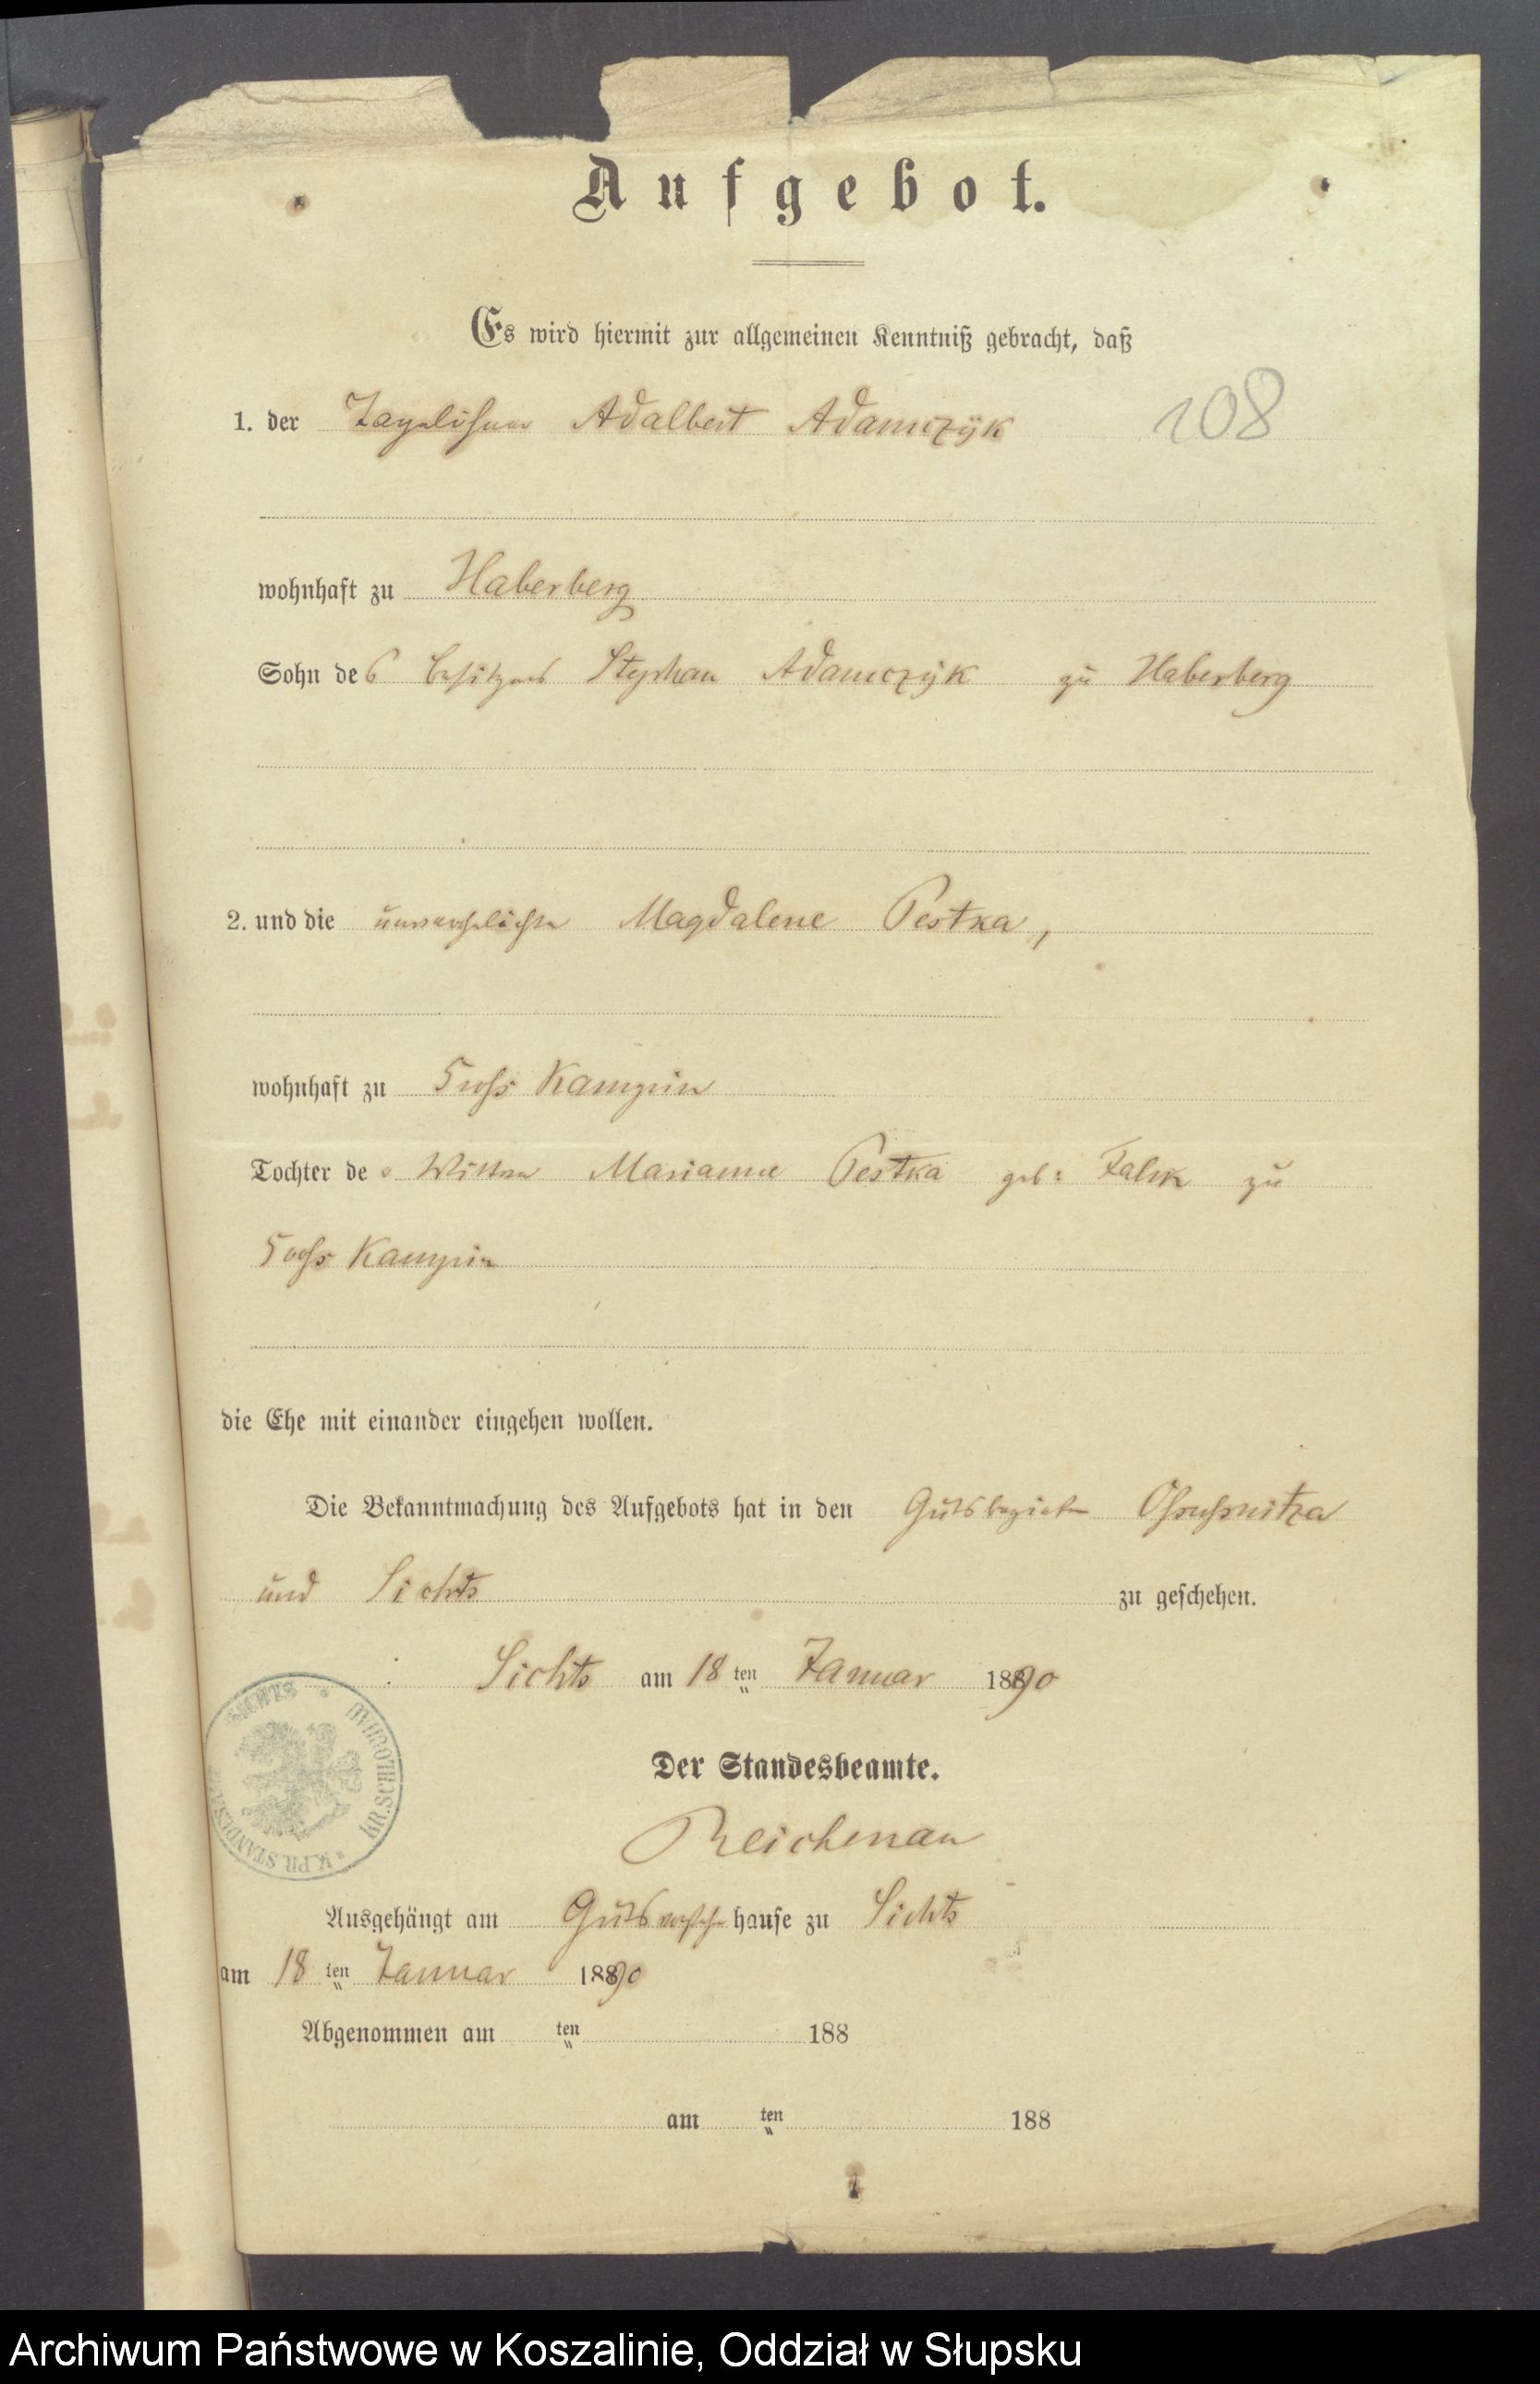 Aufgebot.
Es wird hiermit zur allgemeinen Kenntniß gebracht, daß
1. der Tagelöhner Adalbert Adamczÿk
108
wohnhaft zu Haberberg
Sohn des Besitzers Stephan Adamczÿk zu Haberberg
2. und die unverehelichte Magdalene Pestka,
wohnhaft zu Gross Kampin
Tochter der Wittwe Marianne Pestka geb: Falk zu
Gross Kampin
die Ehe mit einander eingehen wollen.
Die Bekanntmachung des Aufgebots hat in den Gutsbezirken Ossussnitza
und Sichts zu geschehen.
Sichts am 18 ten Januar 1890
Der Standesbeamte.
Reichenau
K.PR. STANDESA SICHTS KR. SCHLOCHAU
Ausgehängt am Gutsvorsteher hause zu Sichts
am 18 ten Januar 1890
Abgenommen am ten 188
am ten 188
Archiwum Państwowe w Koszalinie, Oddział w Słupsku